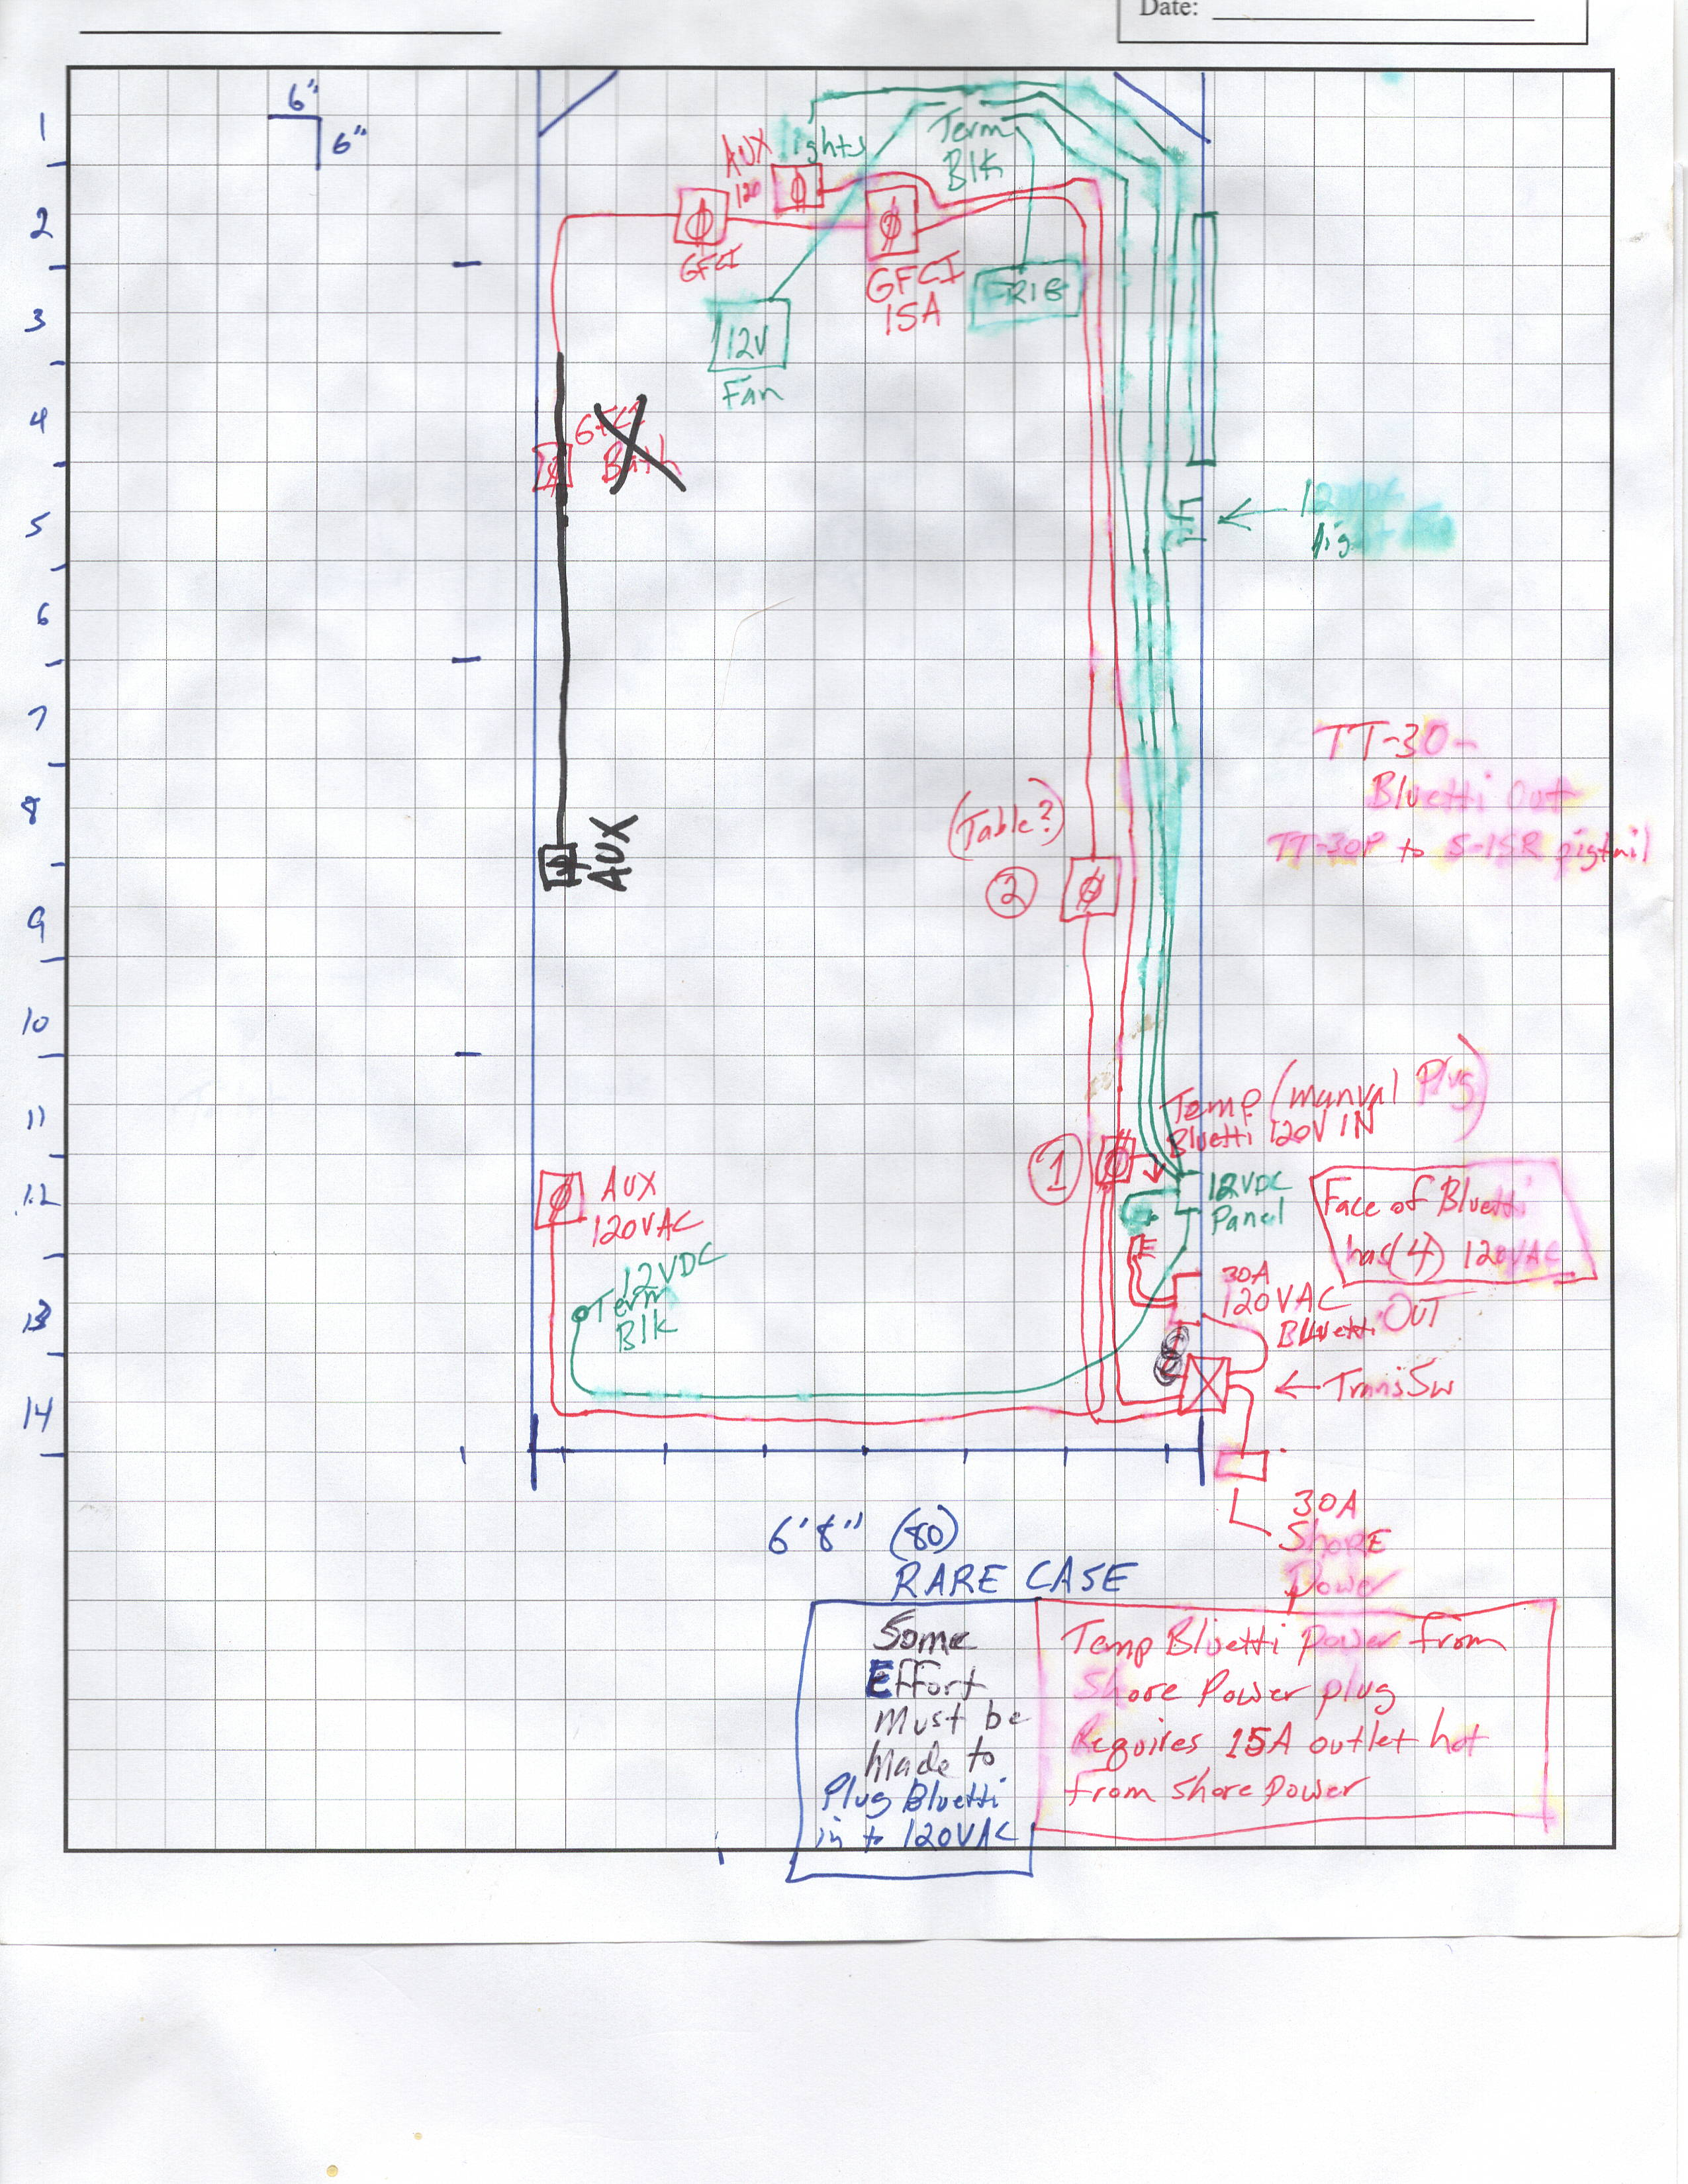 Date:
6"
6"
1
2
3
4
5
6
7
8
9
10
11
12
13
14
AUX
120
lights
Term
Blk
GFCI
GFCI
15A
FRIG
12V
Fan
GFCI
Bath
12VDC
AUX
(Table?)
2
TT-30-
Bluetti Out
TT-30P to 5-15R pigtail
Temp (manual Plug)
Bluetti 120V IN
1
12VDC
Panel
Face of Bluetti
has (4) 120VAC
AUX
120VAC
12VDC
Term
Blk
30A
120VAC
Bluetti OUT
Trans Sw
30A
Shore
Power
6'8" (80)
RARE CASE
Some
Effort
Must be
Made to
Plug Bluetti
in to 120VAC
Temp Bluetti power from
Shore Power plug
Requires 15A outlet hot
from shore power